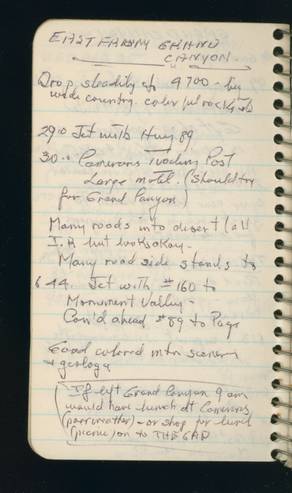 EAST FROM GRAND
CANYON.
Drop steadily 4700 - by
wide country. color
29.0 Jct with Hwy 89
30.0 Camerons Trading Post
Large motel. (Should try
for Grand Canyon)
Many roads into desert (all
I.R but looks okay -
Many road side stands to
644. Jct with #160 to
Monument Valley -
Con'd ahead #89 to Page
Good colored mtn scenery
+ geology
(If left Grand Canyon 9 am
would have lunch at Camerons
- or shop for lunch
(picnic) on to THE GAP